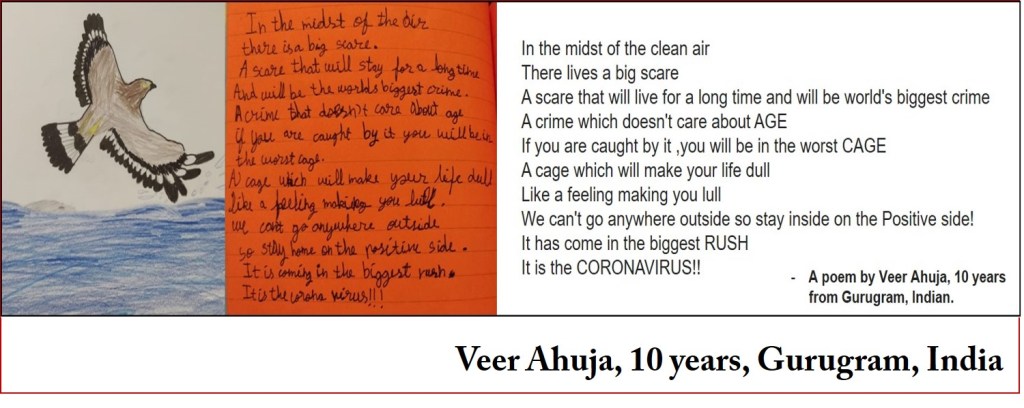 In the midst of the air
there is a big scare.
A scare that will stay for a long time
And will be the worlds biggest crime.
A crime that doesn't care about age
if you are caught by it you will be in
the worst cage.
A cage which will make your life dull
like a feeling making you lull.
we cant go anywhere outside
so stay home on the positive side.
It is coming in the biggest rush.
It is the corona virus!!!
In the midst of the clean air
There lives a big scare
A scare that will live for a long time and will be world's biggest crime
A crime which doesn't care about AGE
If you are caught by it ,you will be in the worst CAGE
A cage which will make your life dull
Like a feeling making you lull
We can't go anywhere outside so stay inside on the Positive side!
It has come in the biggest RUSH
It is the CORONAVIRUS!!
- A poem by Veer Ahuja, 10 years
from Gurugram, Indian.
Veer Ahuja, 10 years, Gurugram, India